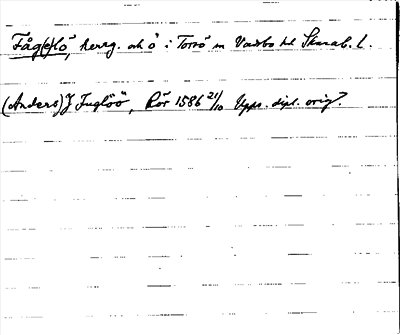 Fåg(e)lö, herrg. och ö i Torsö sn Vadsbo hd Skarab. l.
(Anders) J Fuglöö, Rör 1586 21/10 Upps. dipl. orig.